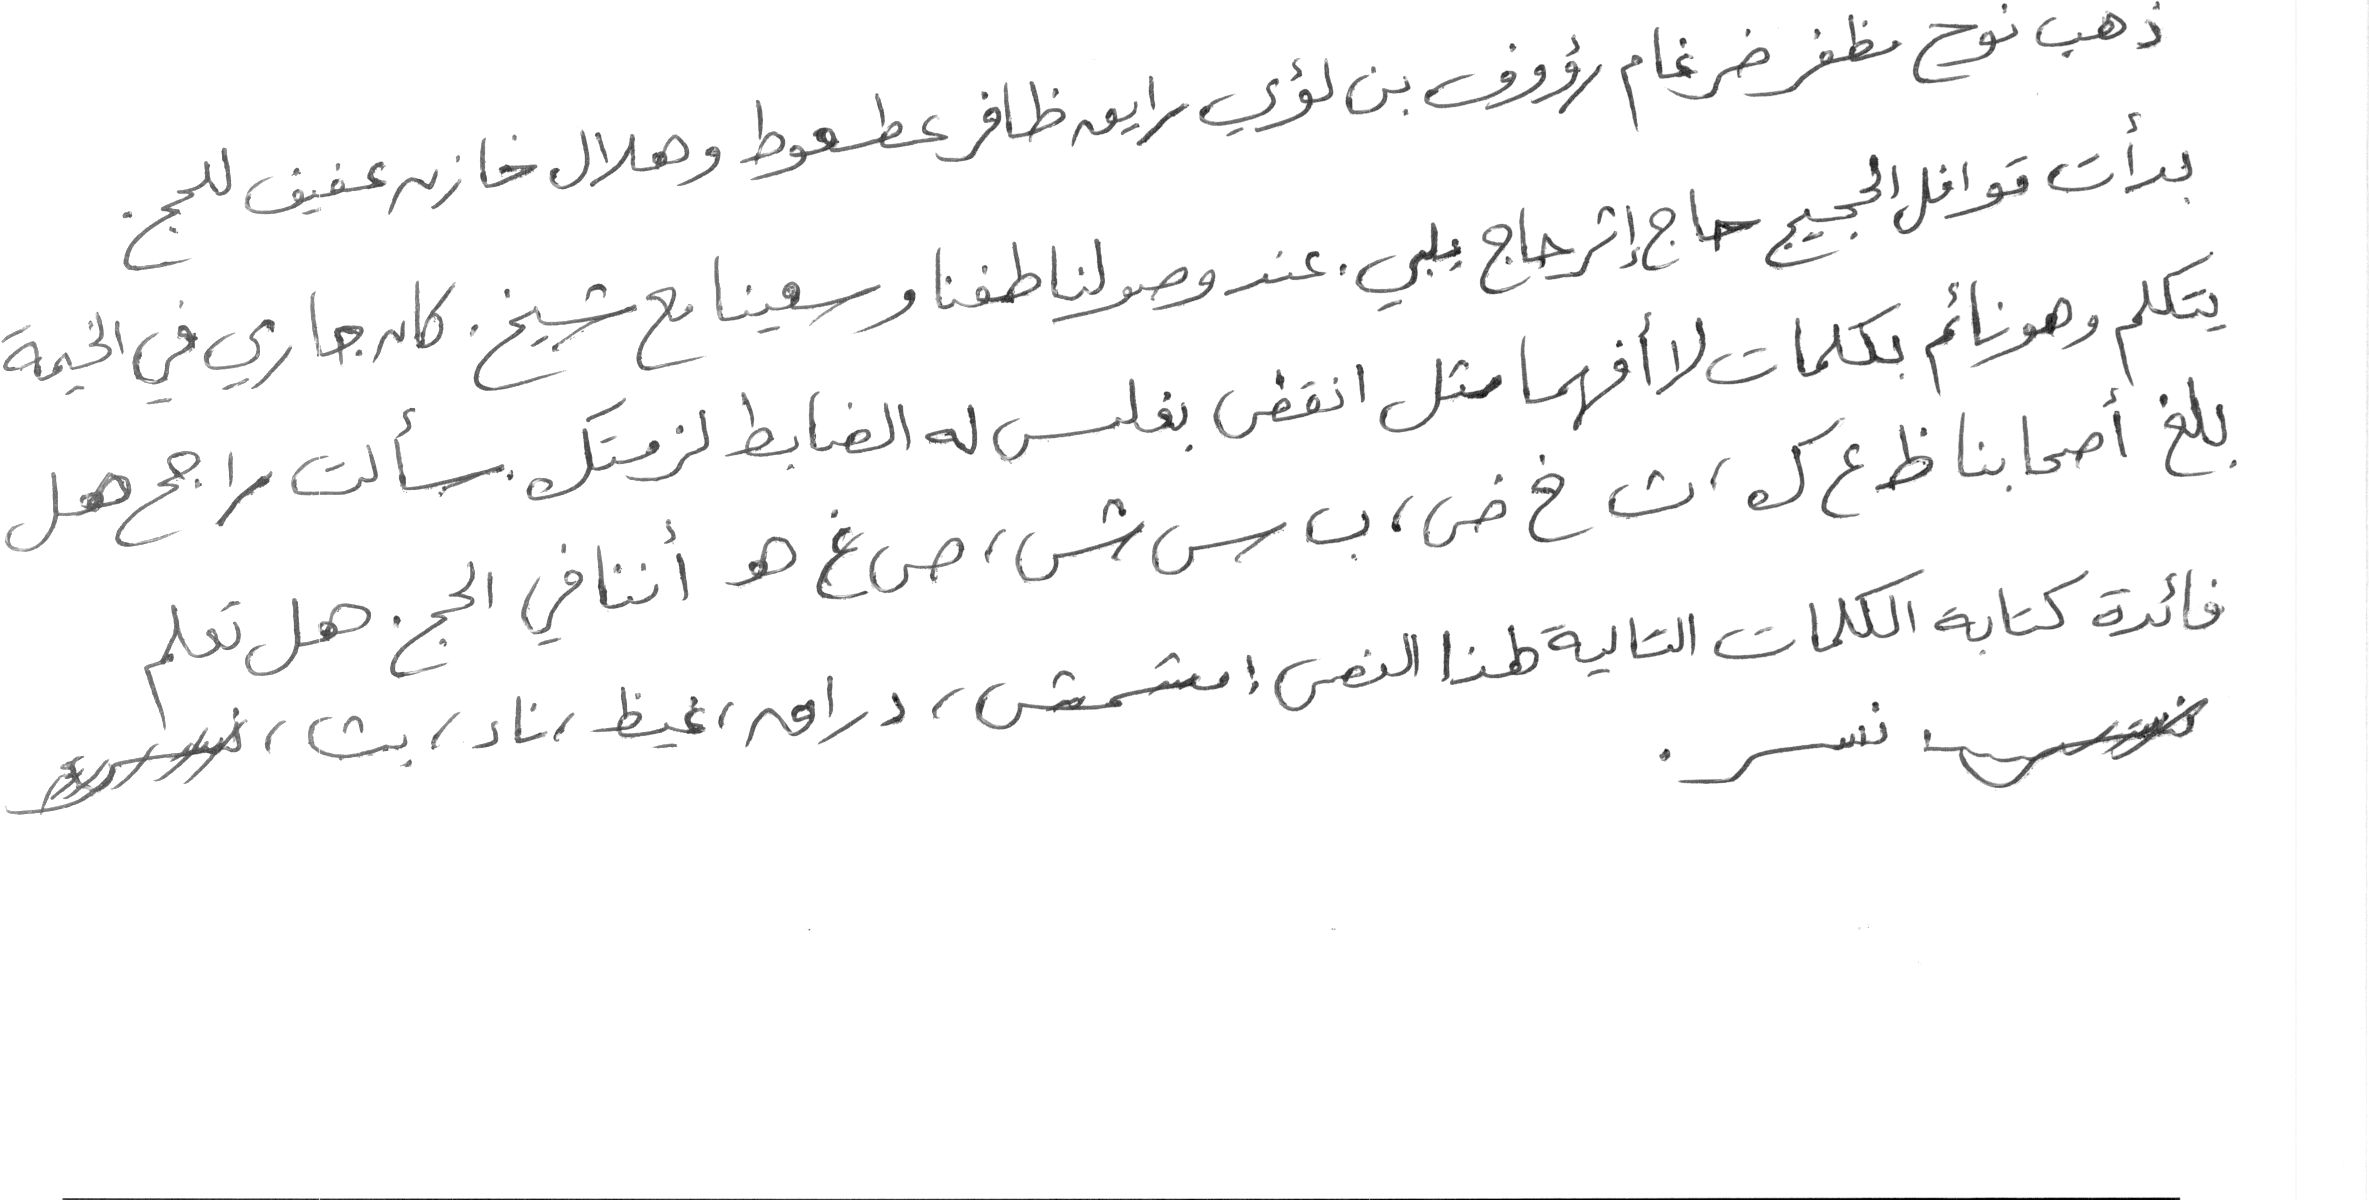 ذهب نوح مظفر ضرغام رؤوف بن لؤي رايق ظافر عطعوط وهلال خازن عفيف للحج.
بدأت قوافل الحجيج حاج إثر حاج يلبي. عند وصولنا طفنا وسعينا مع شيخ. كان جاري في الخيمة
يتكلم وهو نائم بكلمات لا أفهمها مثل انقض بغلس له الضابط لزمتك. سألت راجح هل
بلغ أصحابنا ظ ع ك، ث خ ض، ب س ش، ص غ هو أننا في الحج. هل تعلم
فائدة كتابة الكلمات التالية لهذا النص: مشمش، دراق، غيظ، ناد، بث،
نسر.